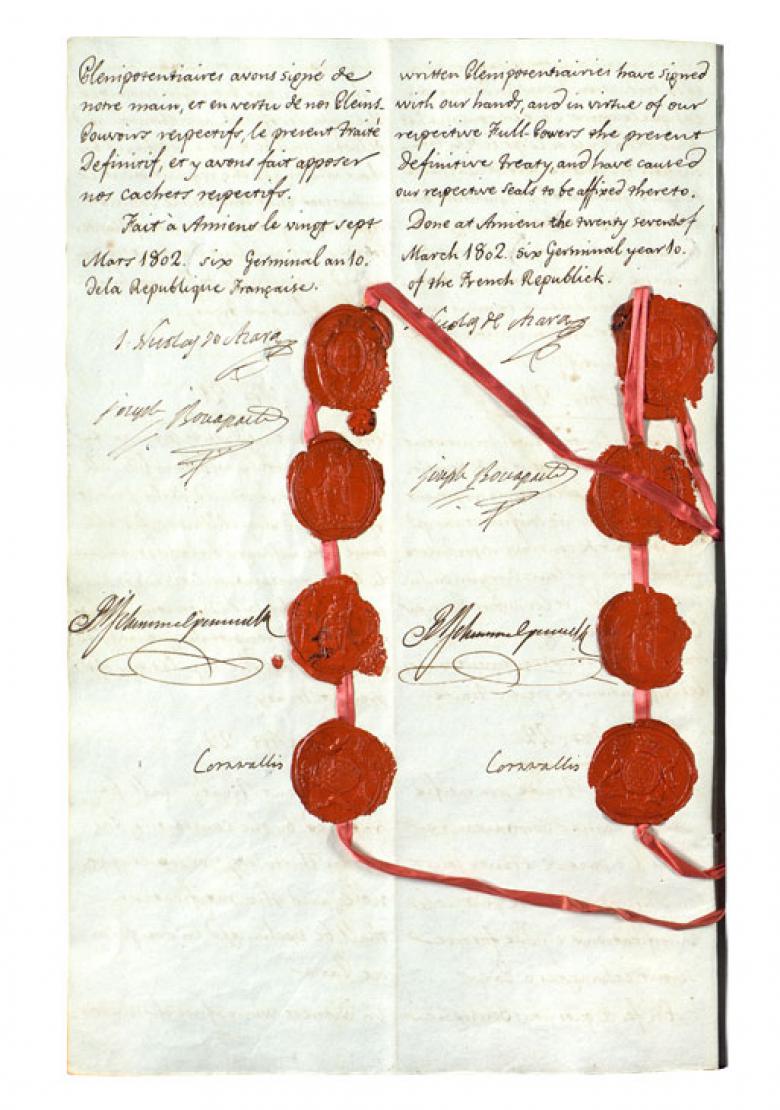 Plenipotentiaires avons signé de
notre main, et en vertu de nos Pleins-
Pouvoirs respectifs, le present Traité
Definitif, et y avons fait apposer
nos cachets respectifs.
Fait à Amiens le vingt sept
Mars 1802. six Germinal an 10.
de la Republique Française.
J. Nicolas de Azara
Joseph Bonaparte
RJSchimmelpenninck
Cornwallis
written Plenipotentiaries have signed
with our hands, and in virtue of our
respective Full-Powers the present
definitive Treaty, and have caused
our respective seals to be affixed thereto.
Done at Amiens the twenty seven of
March 1802. six Germinal year 10.
of the French Republick.
Nicolas de Azara
Joseph Bonaparte
RJSchimmelpenninck
Cornwallis